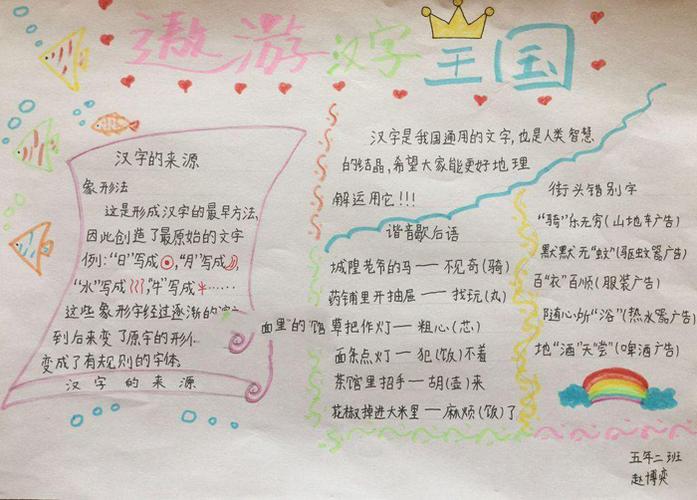 遨游汉字王国
汉字的来源
象形法
这是形成汉字的最早方法,
因此创造了最原始的文字
例:“日”写成,“月”写成
“水”写成,“牛”写成……
这些象形字经过逐渐的
到后来变了原字的形
变成了有规则的字体。
汉字的来源
汉字是我国通用的文字,也是人类智慧
的结晶,希望大家能更好地理
解运用它!!!
谐音歇后语
城隍老爷的马——不见奇(骑)
药铺里开抽屉——找玩(丸)
面里”的“馅
草把作灯——粗心(芯)
面条点灯——犯(饭)不着
茶馆里招手——胡(壶)来
花椒掉进大米里——麻烦(饭)了
街头错别字
“骑”乐无穷(山地车广告)
默默无“蚊”(驱蚊器广告)
百“衣”百顺(服装广告)
随心所“浴”(热水器广告)
地“酒”天堂(啤酒广告)
五年二班
赵博奕